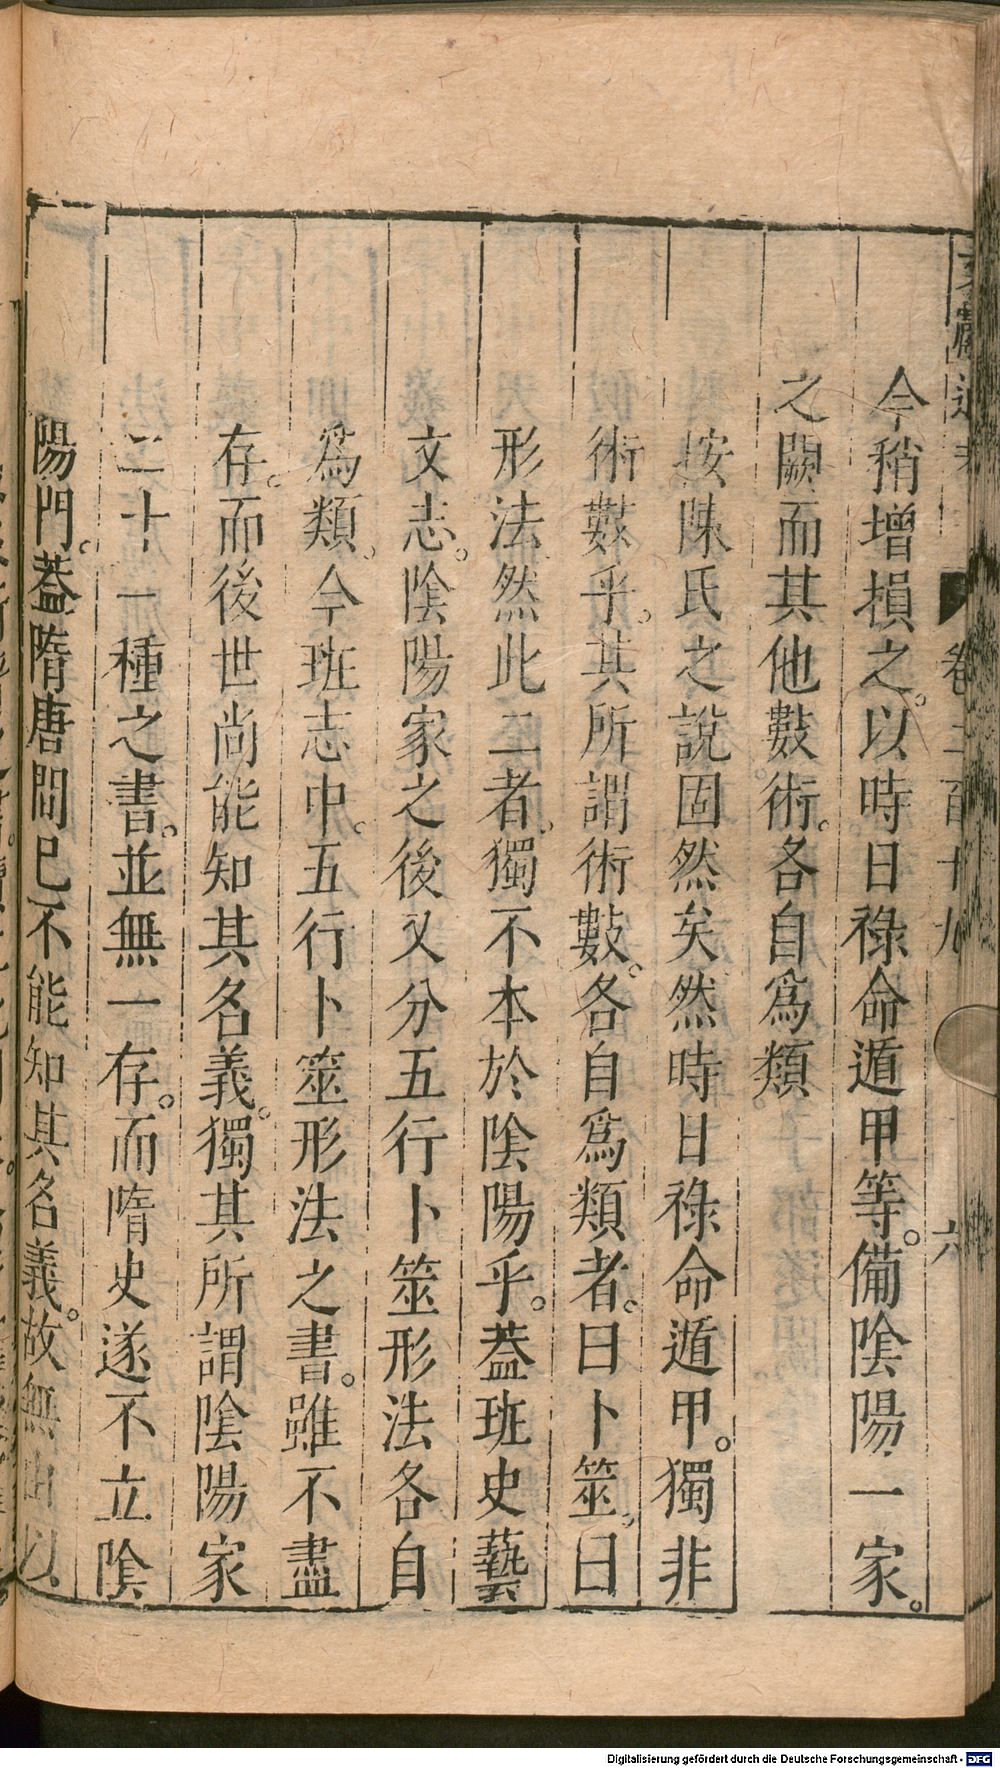 文獻通考 卷二百十九 六
今稍增損之。以時日祿命遁甲等。備隂陽一家。
之闕而其他數術。各自爲類。
按陳氏之說固然矣然時日祿命遁甲。獨非
術數乎。其所謂術數。各自爲類者。曰卜筮。曰
形法然此二者。獨不本於隂陽乎。葢班史藝
文志。隂陽家之後又分五行卜筮形法各自
爲類。今班志中。五行卜筮形法之書。雖不盡
存。而後世尚能知其名義。獨其所謂隂陽家
二十一種之書。並無一存。而隋史遂不立隂
陽門。葢隋唐間已不能知其名義。故無由以
Digitalisierung gefördert durch die Deutsche Forschungsgemeinschaft - DFG